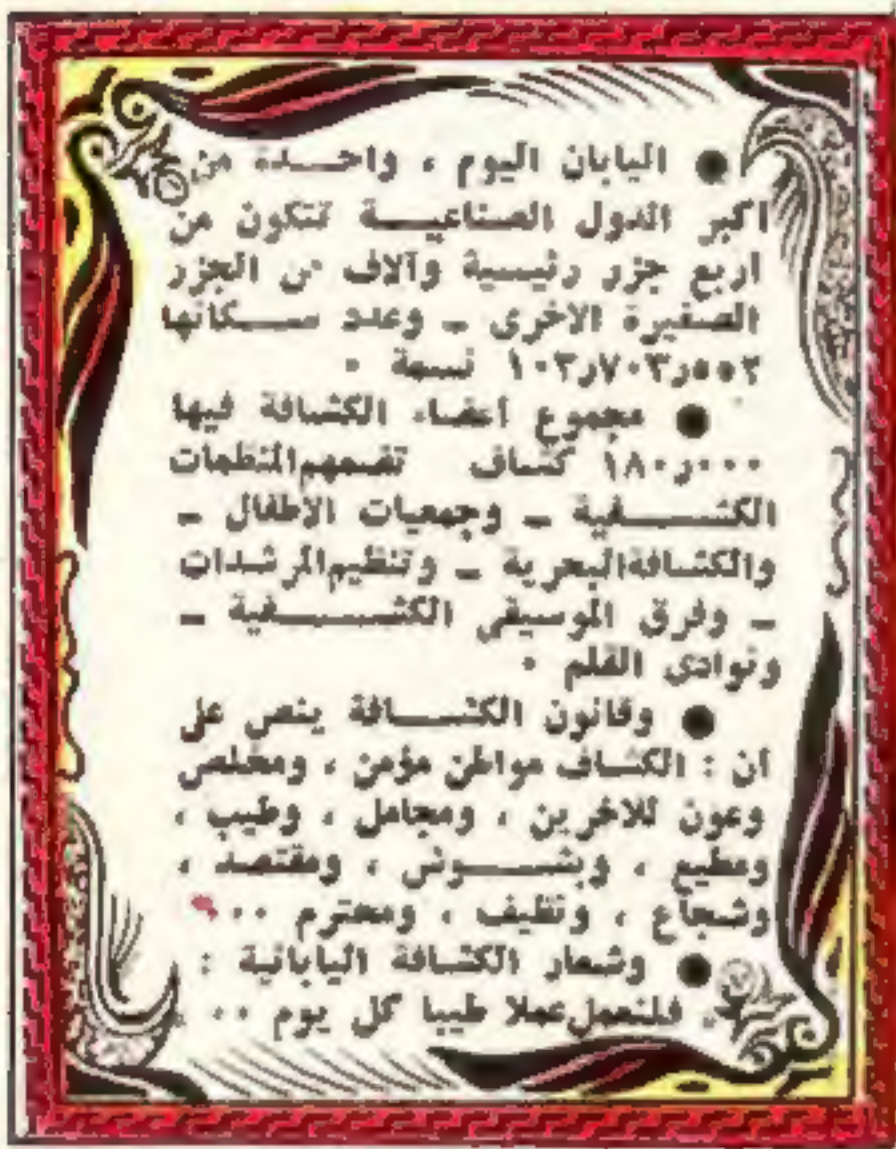 ● اليابان اليوم ، واحـــدة من
اكبر الدول الصناعيـــة تتكون من
اربع جزر رئيسية وآلاف من الجزر
الصغيرة الاخرى ــ وعدد ســـكانها
١٠٣ر٧٠٣ر٥٥٢ نسمة ٠
● مجموع أعضاء الكشافة فيها
١٨٠ر٠٠٠ كشاف تضمهم المنظمات
الكشـــــفية ــ وجمعيات الأطفال ــ
والكشافة البحرية ــ وتنظيم المرشدات
ــ وفرق الموسيقى الكشـــــفية ــ
ونوادى القلم ٠
● وقانون الكشـــافة ينص على
أن : الكشاف مواطن مؤمن ، ومخلص
وعون للاخرين ، ومجامل ، وطيب ،
ومطيع ، وبشـــوش ، ومقتصد ،
وشجاع ، ونظيف ، ومحترم ٠٠
● وشعار الكشافة اليابانية :
فلنعمل عملا طيبا كل يوم ٠٠